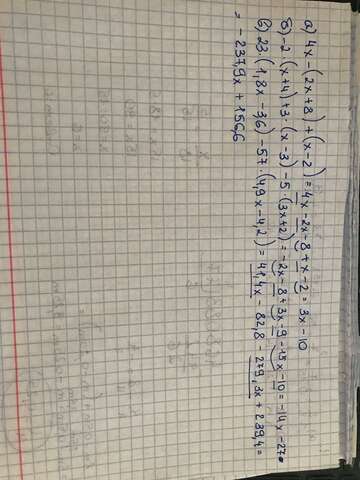 а) 4x-(2x+8)+(x-2)=4x-2x-8+x-2=3x-10
б)-2(x+4)+3·(x-3)-5·(3x+2)=-2x-8+3x-9-15x-10=-14x-27
в) 23·(1,8x-3,6)-57·(4,9x-4,2)=41,4x-82,8-279,3x+239,4=
=-237,9x+156,6